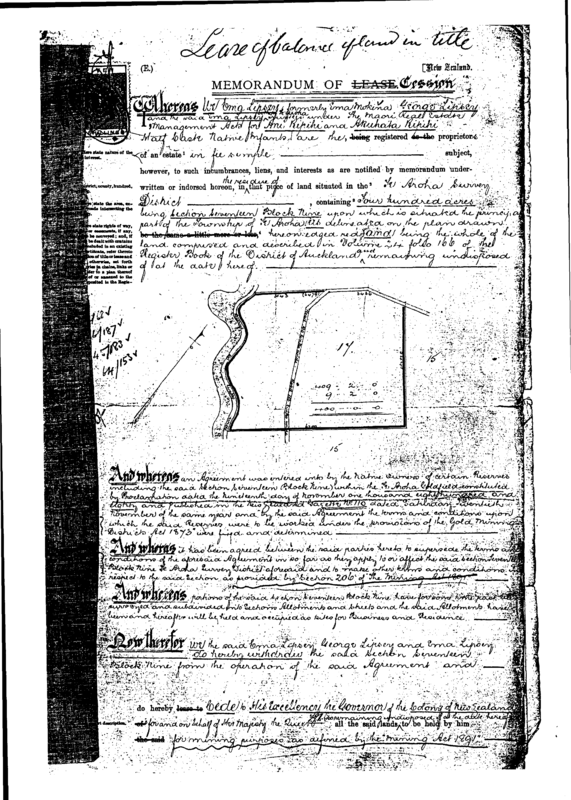 Lease of balance of land in title
(E.)
[New Zealand.
MEMORANDUM OF LEASE Cession
Whereas We Ema Lipsey formerly Ema Mokena George Lipsey
and the said Ema Lipsey under the Maori Real Estate
Management Acts for Ani Ripihi and Akuhata Ripihi
Half Caste Native Infants are the being registered as the proprietors
of an estate in fee simple subject,
however, to such incumbrances, liens, and interests as are notified by memorandum under-
the residue of
written or indorsed hereon, in that piece of land situated in the Te Aroha Survey
District, containing Four hundred acres
being Section Seventeen Block Nine upon which is situated the principal
part of the Township of Te Aroha as delineated on the plan drawn
be the same a little more or less, hereon edged red and being the whole of the
land comprised and described in Volume 24 folio 166 of the
Register Book of the District of Auckland remaining undisposed
of at the date hereof.
17
16
409 - 2 - 0
9 - 2 - 0
400 - 0 - 0
15
And whereas an Agreement was entered into by the Native owners of certain Reserves
including the said Section Seventeen (Block Nine) within the Te Aroha Goldfield constituted
by Proclamation dated the Nineteenth day of November one thousand eight hundred and
eighty and published in the New Zealand Gazette No 110 dated Saturday twentieth
November of the same year and by the said Agreement the terms and conditions upon
which the said Reserves were to be worked under the provisions of the Gold Mining
Districts Act 1873 were fixed and determined
And whereas it has been agreed between the said parties hereto to supersede the terms and
conditions of the aforesaid Agreement in so far as they apply to or affect the said Section Seventeen
Block Nine Te Aroha Survey District aforesaid and to make other terms and conditions
respect to the said Section as provided by Section 206 of The Mining Act 1891
And whereas portions of the said Section Seventeen Block Nine have for some time past been
surveyed and subdivided into Sections Allotments and Streets and the said Allotments have
been and hereafter will be held and occupied as sites for Business and Residence.
Now therefor We the said Ema Lipsey George Lipsey and Ema Lipsey
do hereby withdraw the said Section Seventeen
Block Nine from the operation of the said Agreement and
do hereby lease to Cede to His Excellency the Governor of the Colony of New Zealand
for and on behalf of Her Majesty the Queen all the said lands, to be held by him
the said for mining purposes as defined by the Mining Act 1891